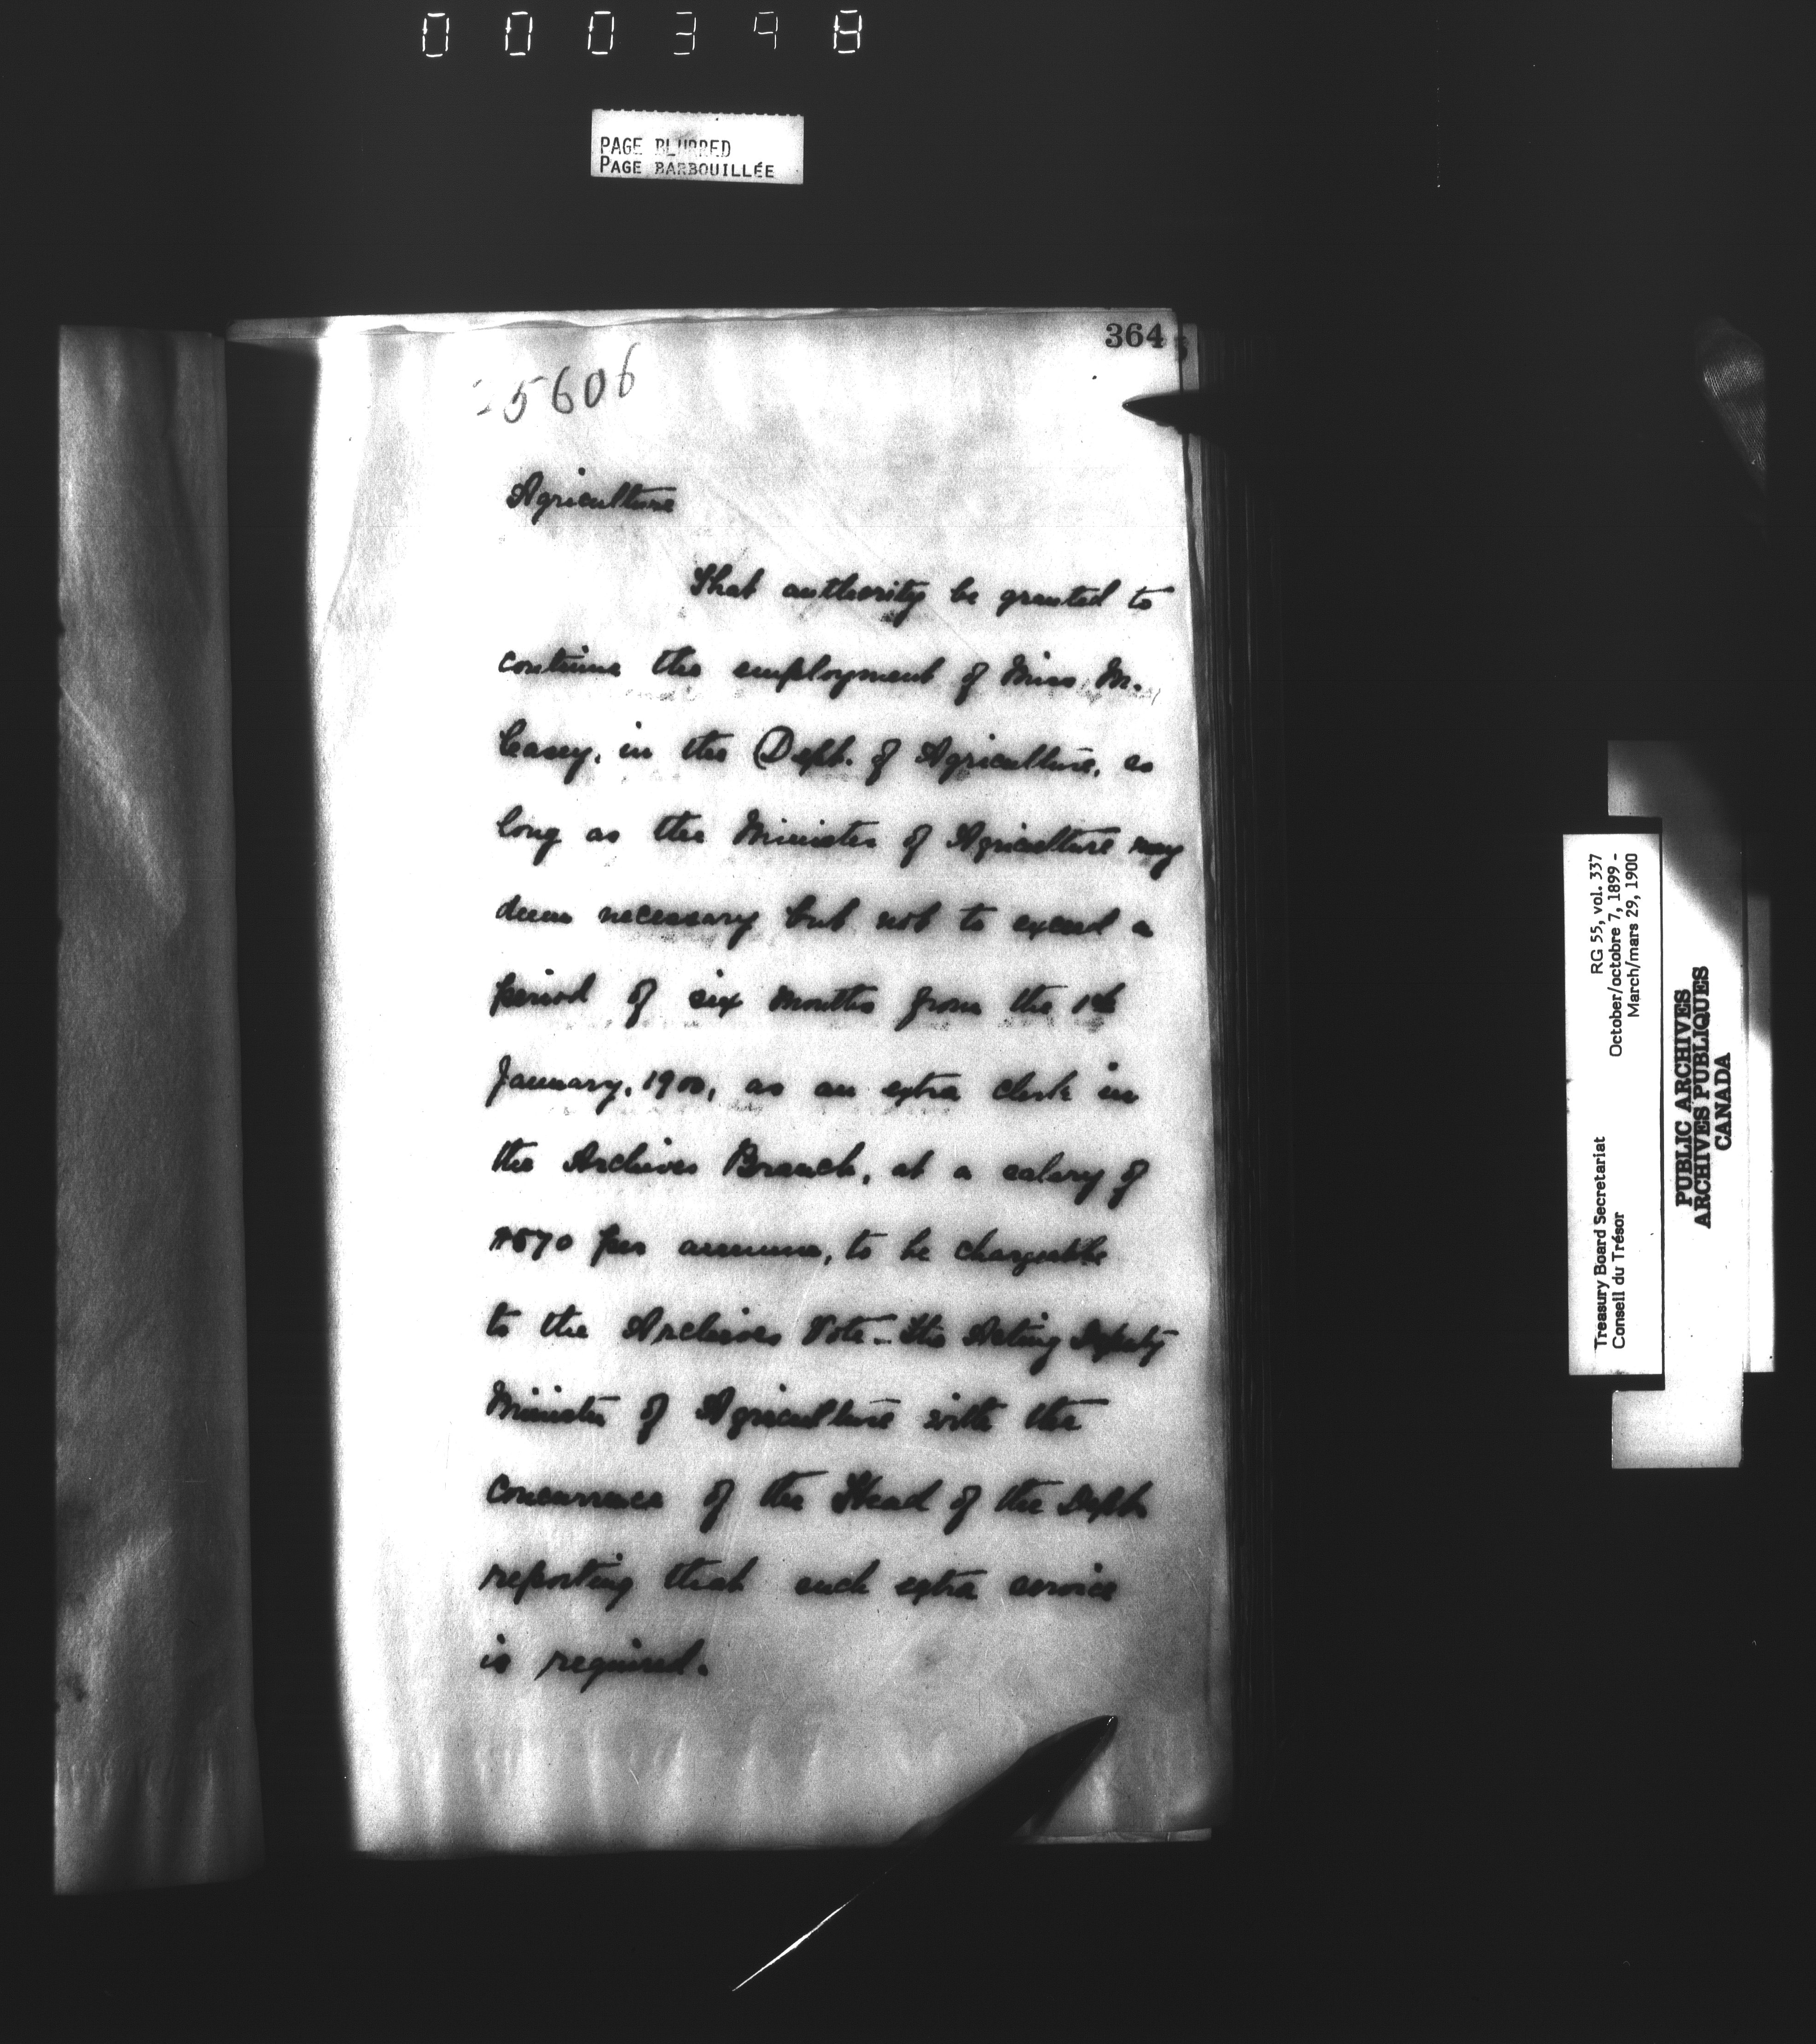 000398
PAGE BLURRED
PAGE BARBOUILLÉE
364
25606
Agriculture
That authority be granted to
continue the employment of Miss M.
Casey, in the Dept. of Agriculture, as
long as the Minister of Agriculture may
deem necessary but not to exceed a
period of six months from the 1st
January, 1900, as an extra clerk in
the Archives Branch, at a salary of
$570 per annum, to be chargeable
to the Archives Vote - the Acting Deputy
Minister of Agriculture with the
concurrence of the Head of the Dept.
reporting that such extra service
is required.
Treasury Board Secretariat RG 55, vol. 337
Conseil du Trésor October/octobre 7, 1899 -
March/mars 29, 1900
PUBLIC ARCHIVES
ARCHIVES PUBLIQUES
CANADA